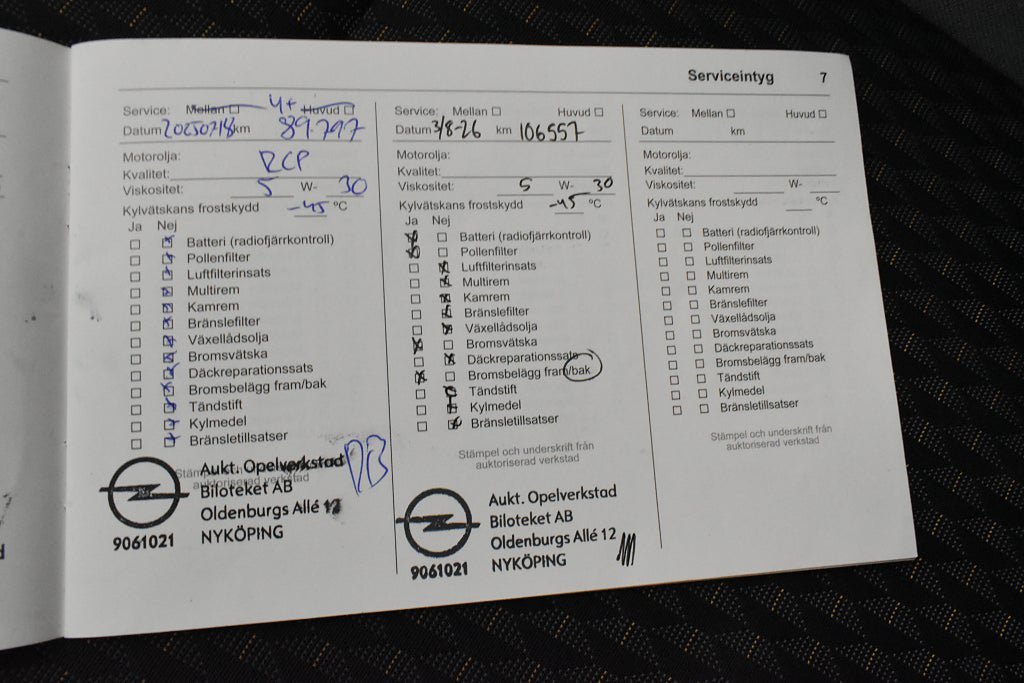 Serviceintyg 7
Service: Mellan ☐ 4+ Huvud ☐
Datum 20250718 km 89.797
Motorolja: RCP
Kvalitet:
Viskositet: 5 W- 30
Kylvätskans frostskydd -45 °C
Ja Nej
Batteri (radiofjärrkontroll)
Pollenfilter
Luftfilterinsats
Multirem
Kamrem
Bränslefilter
Växellådsolja
Bromsvätska
Däckreparationssats
Bromsbelägg fram/bak
Tändstift
Kylmedel
Bränsletillsatser
Aukt. Opelverkstad
Biloteket AB
Oldenburgs Allé 12
9061021 NYKÖPING
Service: Mellan ☐ Huvud ☐
Datum 3/8-26 km 106557
Motorolja:
Kvalitet:
Viskositet: 5 W- 30
Kylvätskans frostskydd -45 °C
Ja Nej
Batteri (radiofjärrkontroll)
Pollenfilter
Luftfilterinsats
Multirem
Kamrem
Bränslefilter
Växellådsolja
Bromsvätska
Däckreparationssats
Bromsbelägg fram/bak
Tändstift
Kylmedel
Bränsletillsatser
Stämpel och underskrift från
auktoriserad verkstad
Aukt. Opelverkstad
Biloteket AB
Oldenburgs Allé 12
9061021 NYKÖPING
Service: Mellan ☐ Huvud ☐
Datum km
Motorolja:
Kvalitet:
Viskositet: W-
Kylvätskans frostskydd °C
Ja Nej
Batteri (radiofjärrkontroll)
Pollenfilter
Luftfilterinsats
Multirem
Kamrem
Bränslefilter
Växellådsolja
Bromsvätska
Däckreparationssats
Bromsbelägg fram/bak
Tändstift
Kylmedel
Bränsletillsatser
Stämpel och underskrift från
auktoriserad verkstad